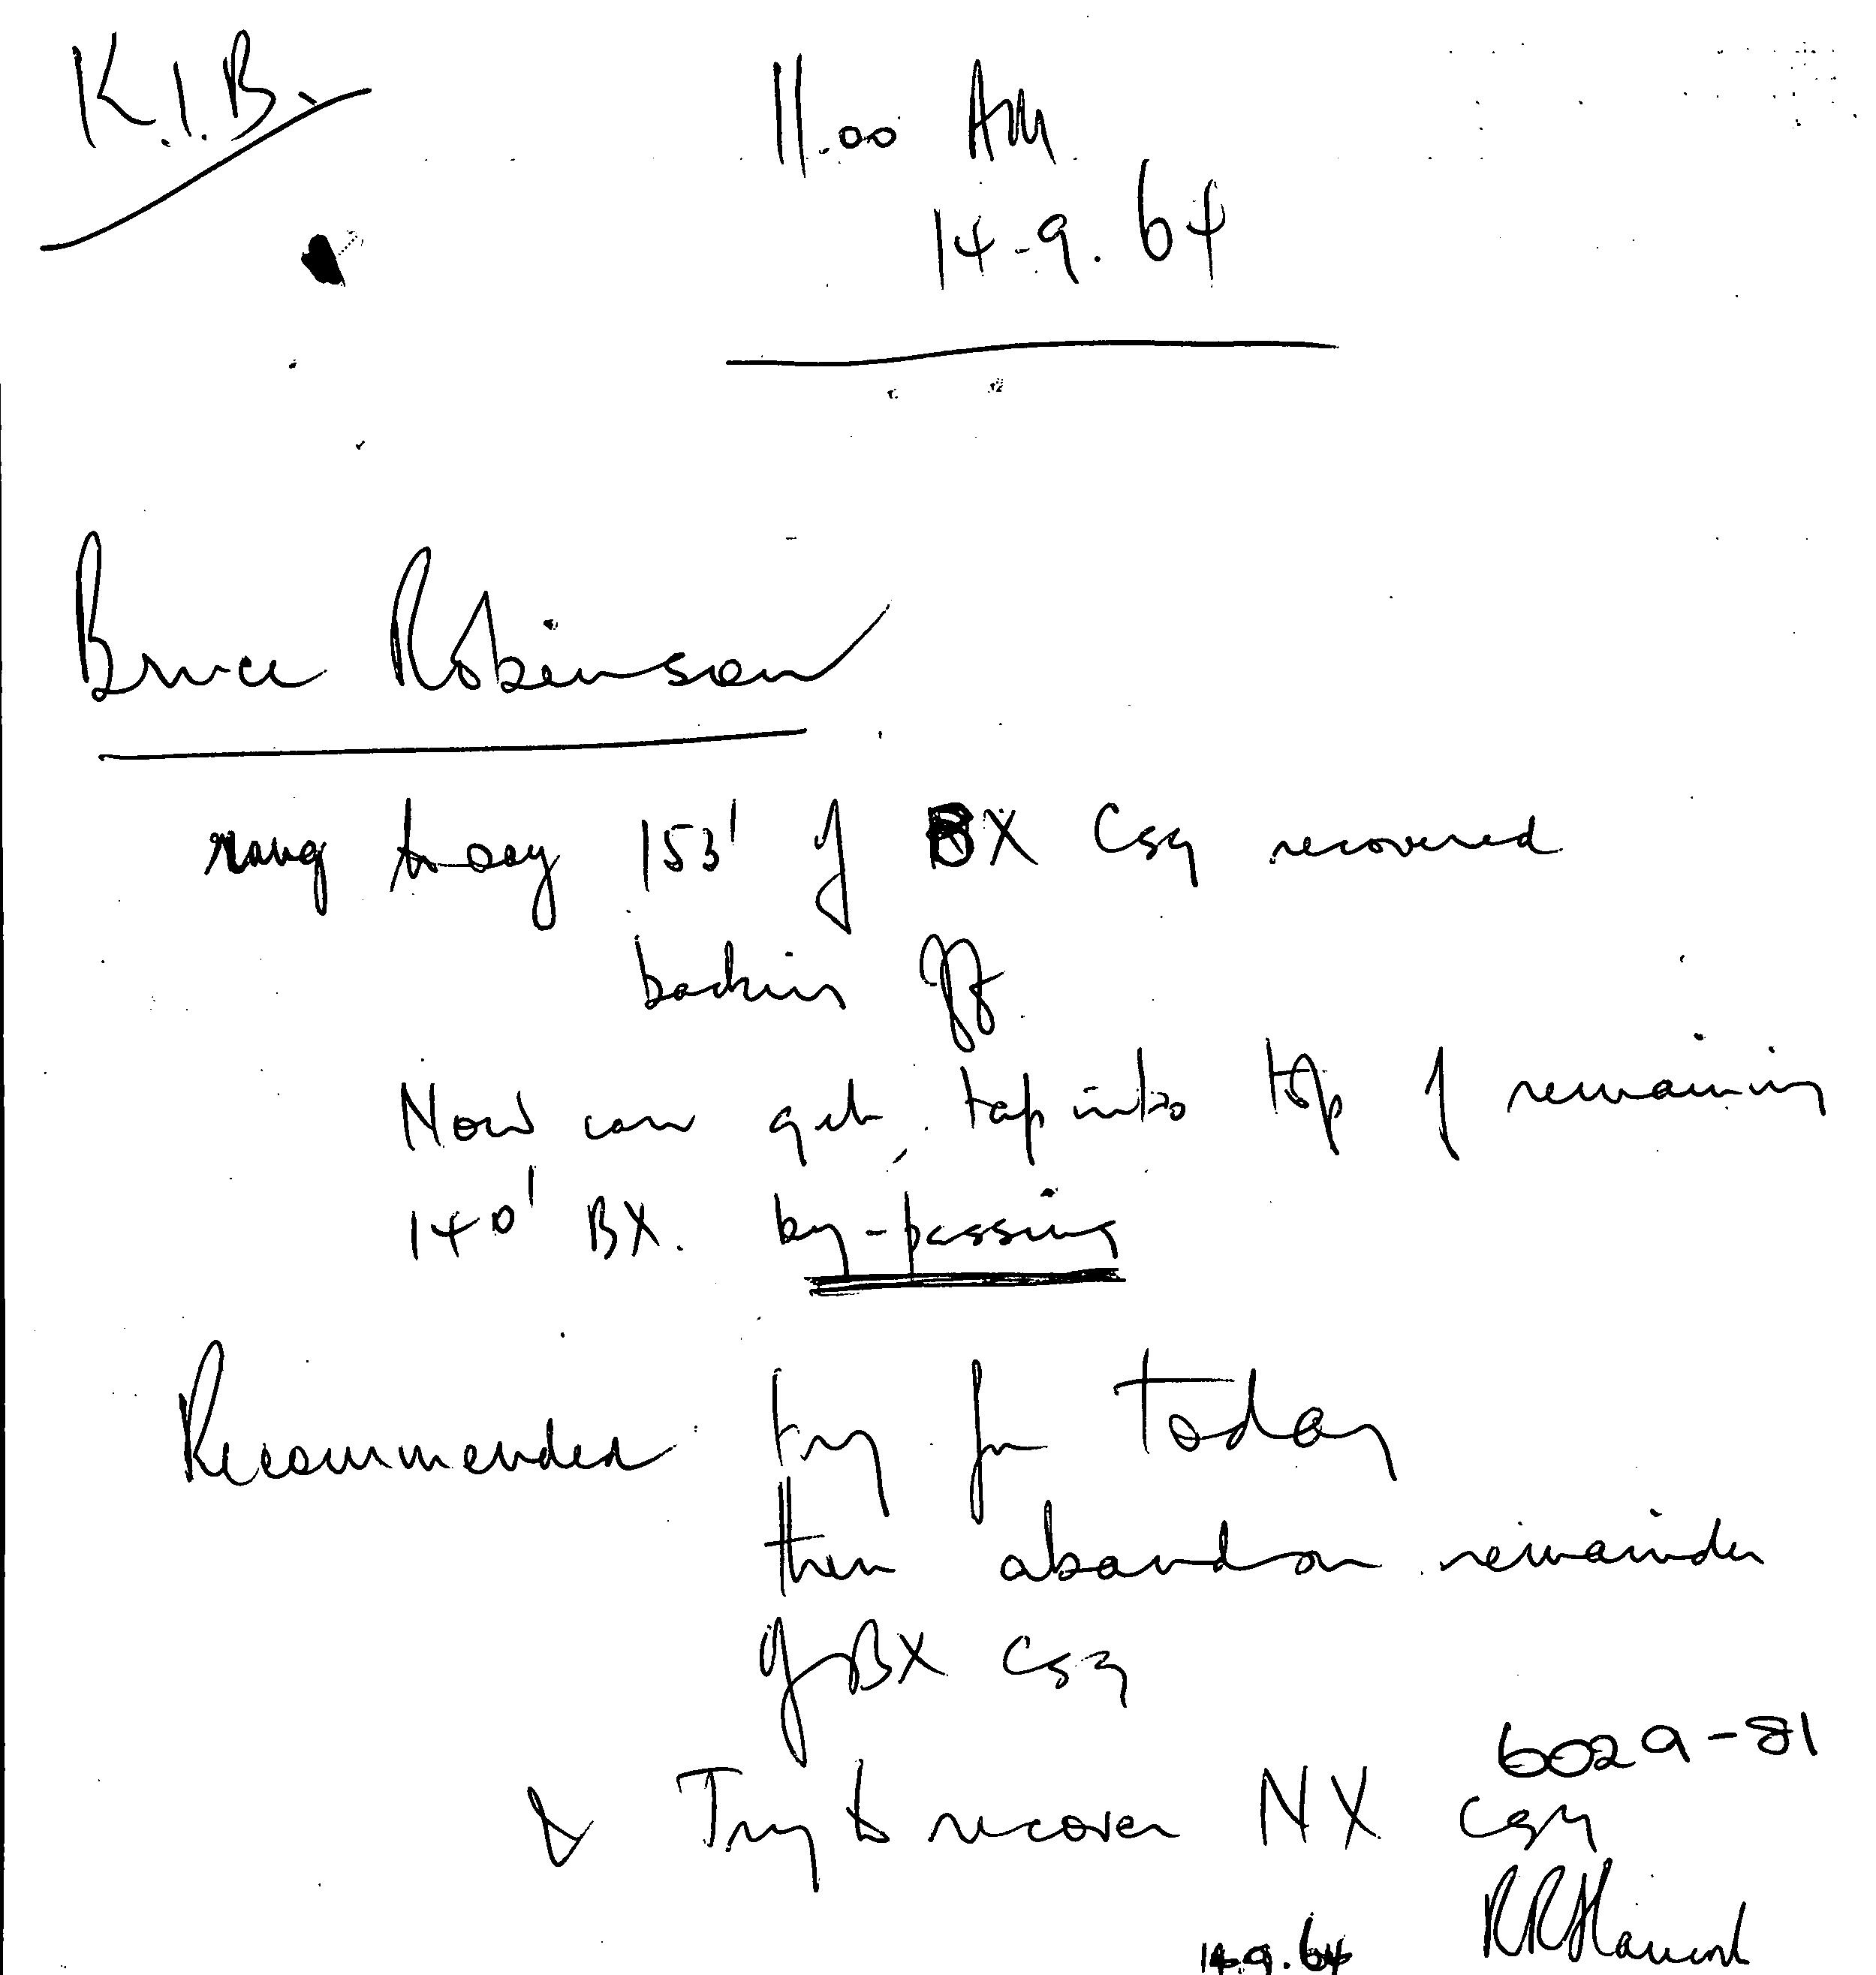 K.I.B.
11.00 AM
14-9.64
Bruce Robinson
rang to say 153' of BX Csg recovered
backing off
Now can get tap into top of remaining
140' BX. by-passing
Recommended try for today
then abandon remainder
of BX Csg
6029-81
& Try to recover NX Csg
14.9.64